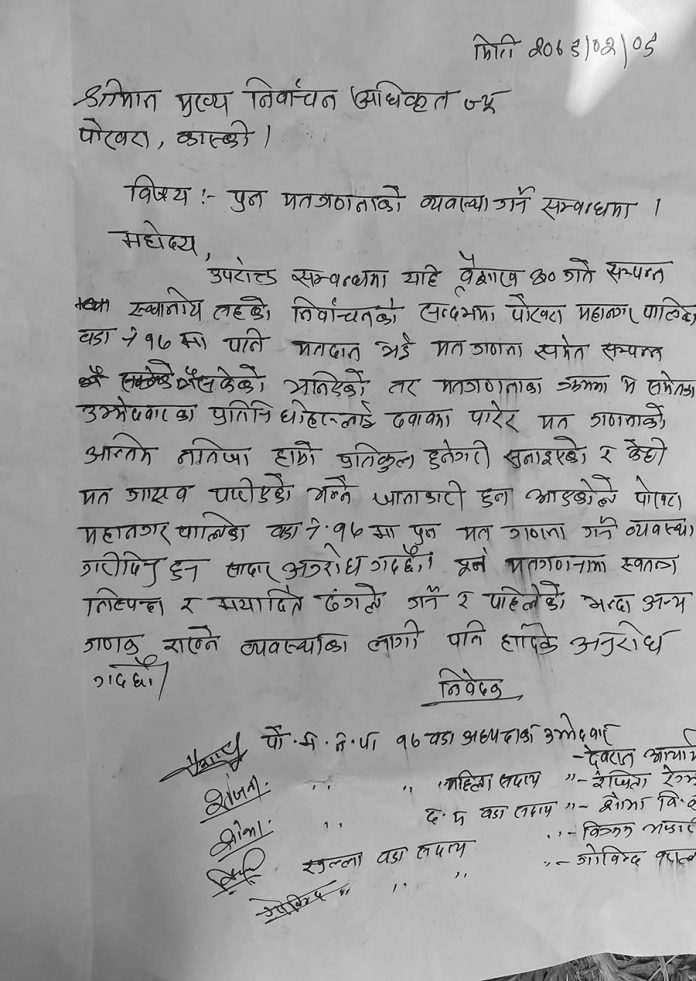 मिति २०७९/०२/०६
श्रीमान मुख्य निर्वाचन अधिकृत ज्यू
पोखरा, कास्की ।
विषय :- पुन मतगणनाको व्यवस्था गर्ने सम्बन्धमा ।
महोदय,
उपरोक्त सम्बन्धमा यहि वैशाख ३० गते सम्पन्न
स्थानीय तहको निर्वाचनको सन्दर्भमा पोखरा महानगरपालिका
वडा नं १७ मा पनि मतदान भई मत गणना समेत सम्पन्न
भनिएको तर मतगणनाका क्रममा म समेतका
उम्मेदवारका प्रतिनिधीहरुलाई दवावमा पारेर मत गणनाको
अन्तिम नतिजा हाम्रो प्रतिकुल हुनेगरी सुनाइएको र केही
मत गायव पारीएको भन्ने जानाकारी हुन आएकोले पोखरा
महानगरपालिका वडा नं. १७ मा पुन मत गणना गर्ने व्यवस्था
गरीदिनु हुन सादर अनुरोध गर्दछौं। पुन मतगणनामा स्वतन्त्र
निष्पक्ष र मर्यादित ढंगले गर्ने र पहिलेको भन्दा अन्य
गणक राख्ने व्यवस्थाका लागी पनि हार्दिक अनुरोध
गर्दछौं।
निवेदक
पो.म.न.पा १७ वडा अध्यक्षका उम्मेदवार - देवराज
रंजिता. ,, ,, महिला सदस्य ,,- रंजिता
शोभा. ,, द.म वडा सदस्य ,,- शोभा वि.
खुल्ला वडा सदस्य ,,- विक्रम
गोविन्द ,, ,, ,, ,,- गोविन्द